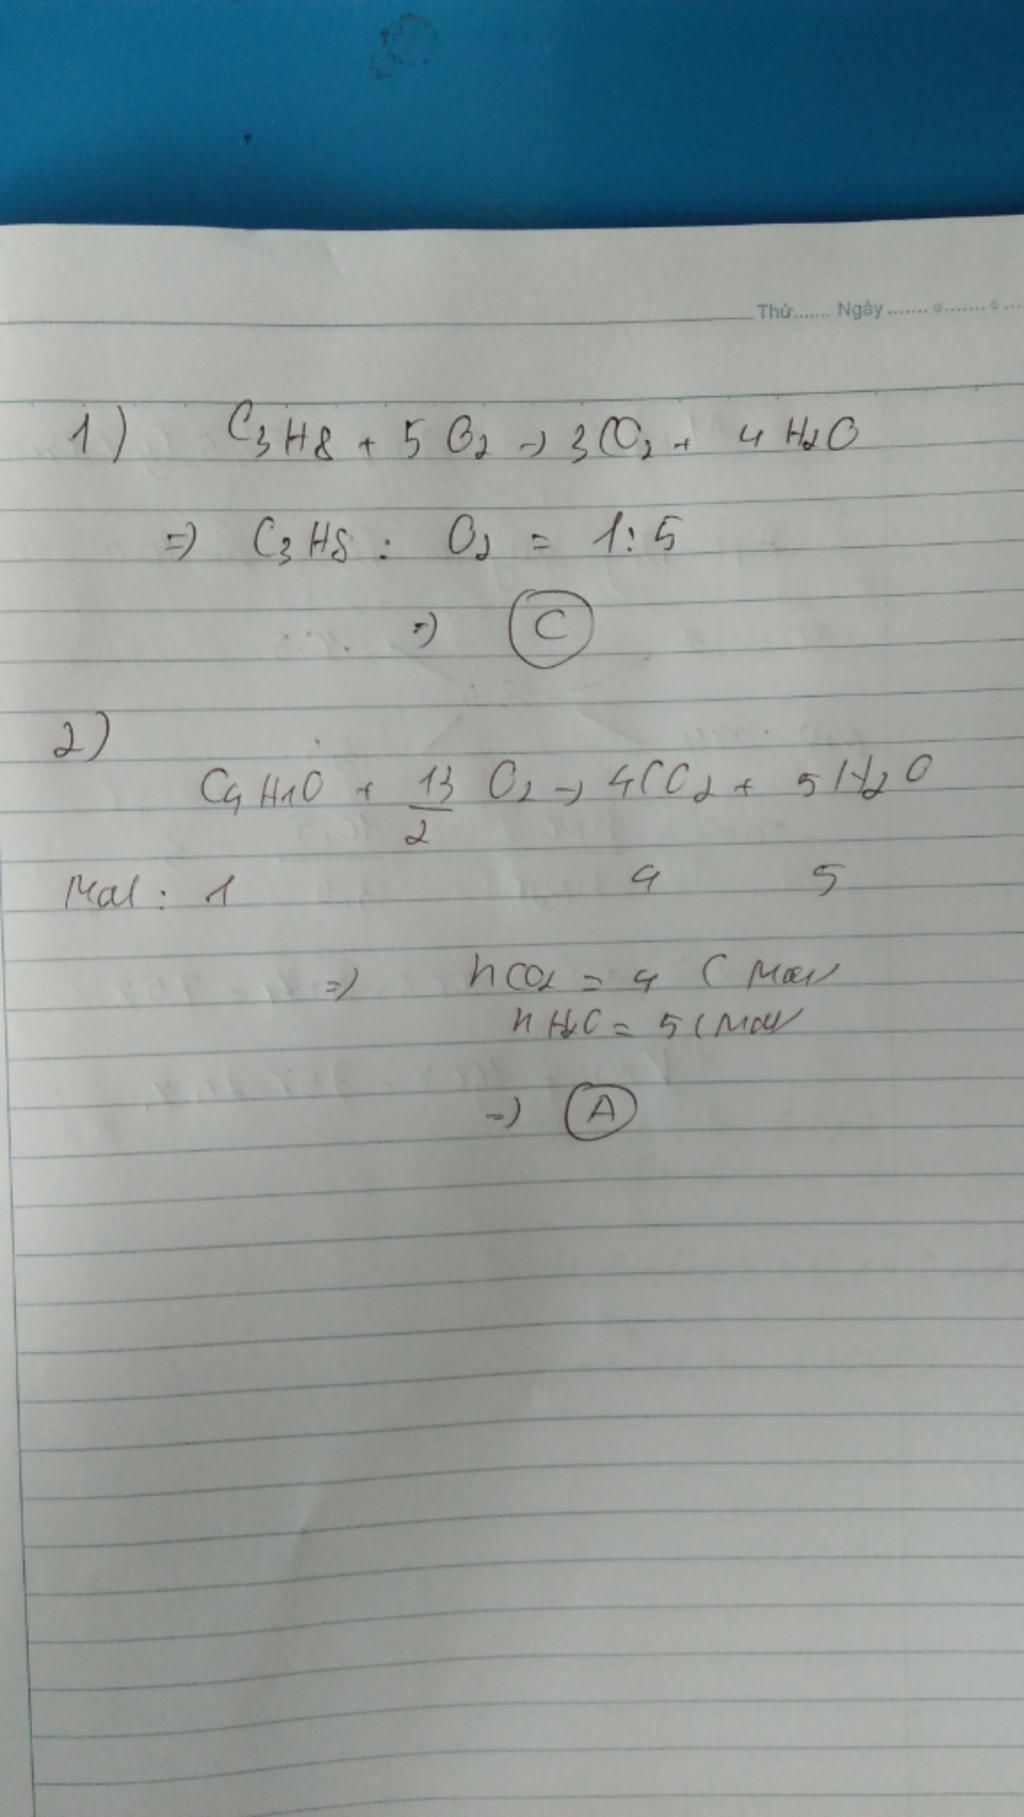 Thứ....... Ngày.......
1) C3H8 + 5 O2 → 3CO2 + 4 H2O
=> C3H8 : O2 = 1:5
=> C
2)
C4H10 + 13/2 O2 → 4CO2 + 5H2O
Mol : 1 4 5
=> nCO2 = 4 (Mol)
nH2O = 5 (Mol)
=> A